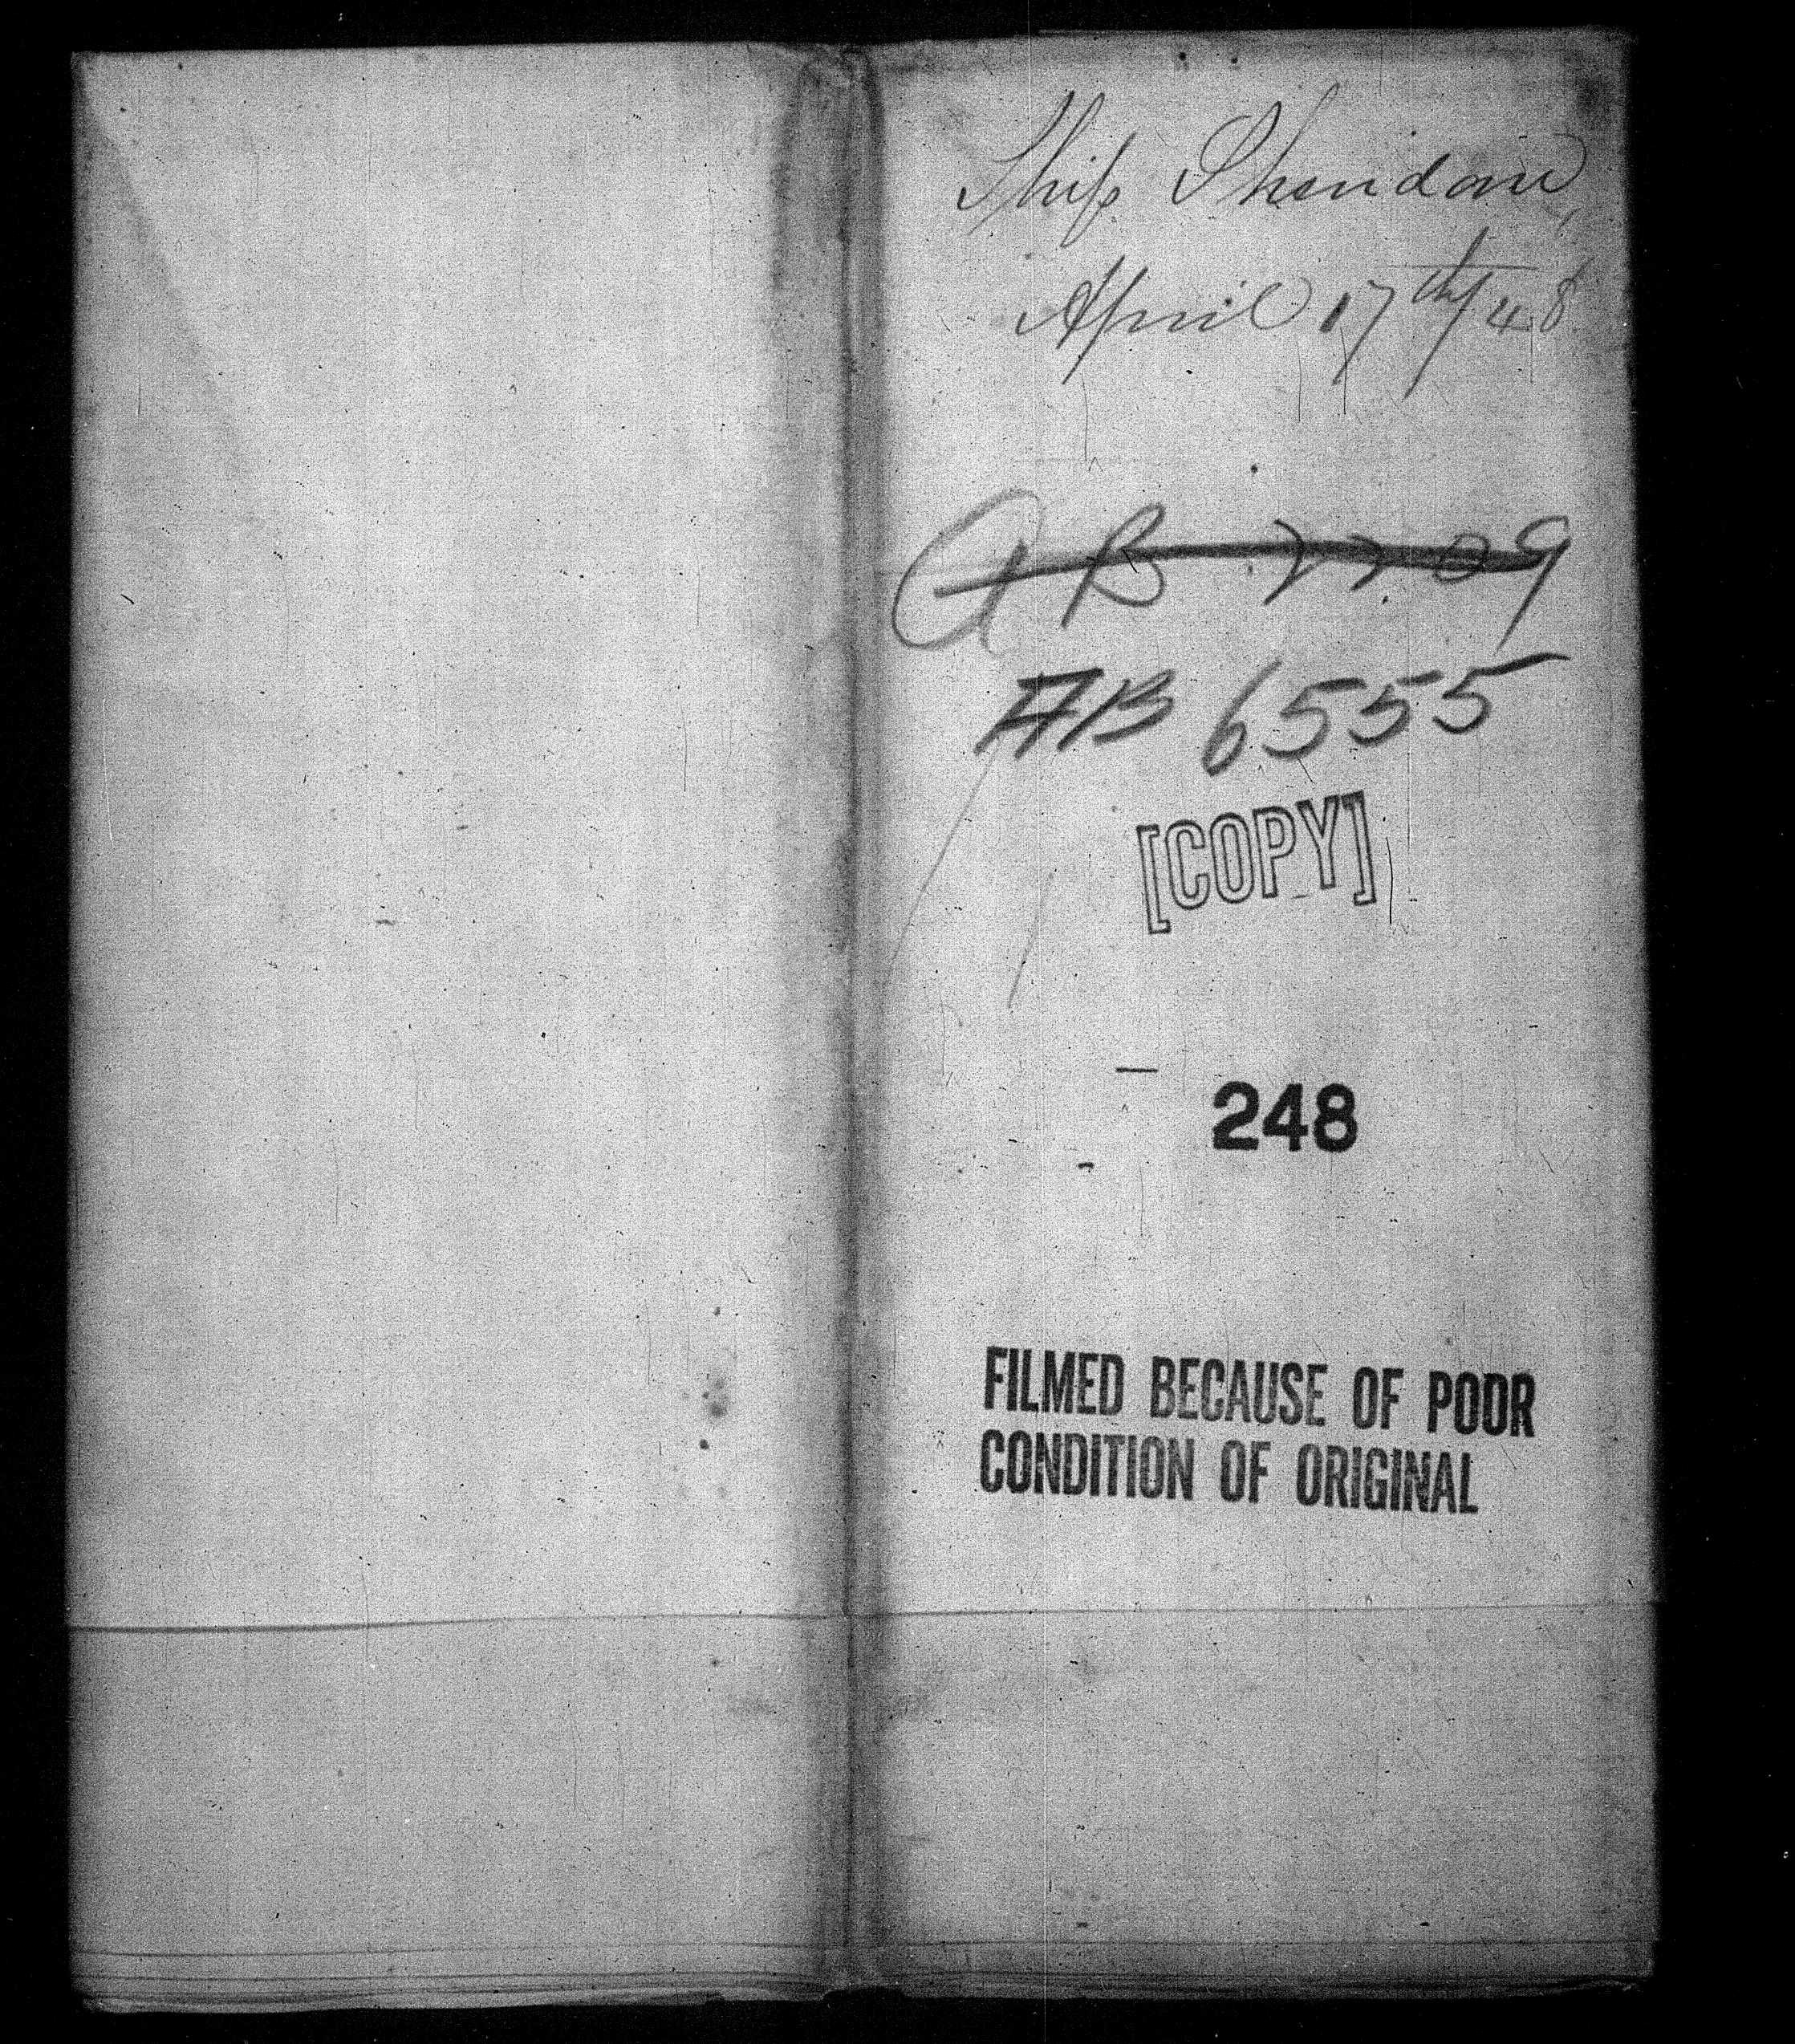 Ship Sheridan,
April 17th/48
AB 7709
AB 6555
[COPY]
248
FILMED BECAUSE OF POOR
CONDITION OF ORIGINAL